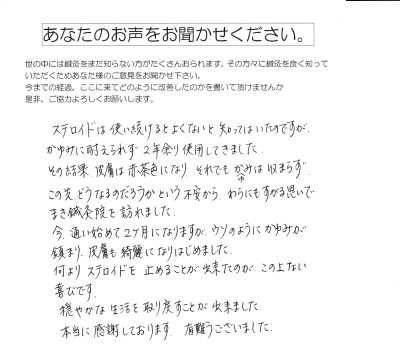 あなたのお声をお聞かせください。
世の中には鍼灸をまだ知らない方がたくさんおられます。その方々に鍼灸を良く知って
いただくためあなた様のご意見をお聞かせ下さい。
今までの経過、ここに来てどのように改善したのかを書いて頂けませんか
是非、ご協力よろしくお願いします。
ステロイドは使い続けるとよくないと知ってはいたのですが、
かゆみに耐えられず2年余り使用してきました。
その結果、皮膚は赤茶色になり、それでもかゆみは収まらず、
この先どうなるのだろうかという不安から、わらにもすがる思いで
まき鍼灸院を訪れました。
今、通い始めて2ヶ月になりますが、ウソのようにかゆみが
鎮まり、皮膚も綺麗になりはじめました。
何よりステロイドを止めることが出来たのが、この上ない
喜びです。
穏やかな生活を取り戻すことが出来ました。
本当に感謝しております。有難うございました。